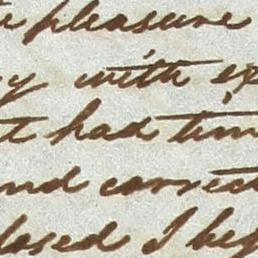 pleasure
with
had tim
and correct
closed I beg